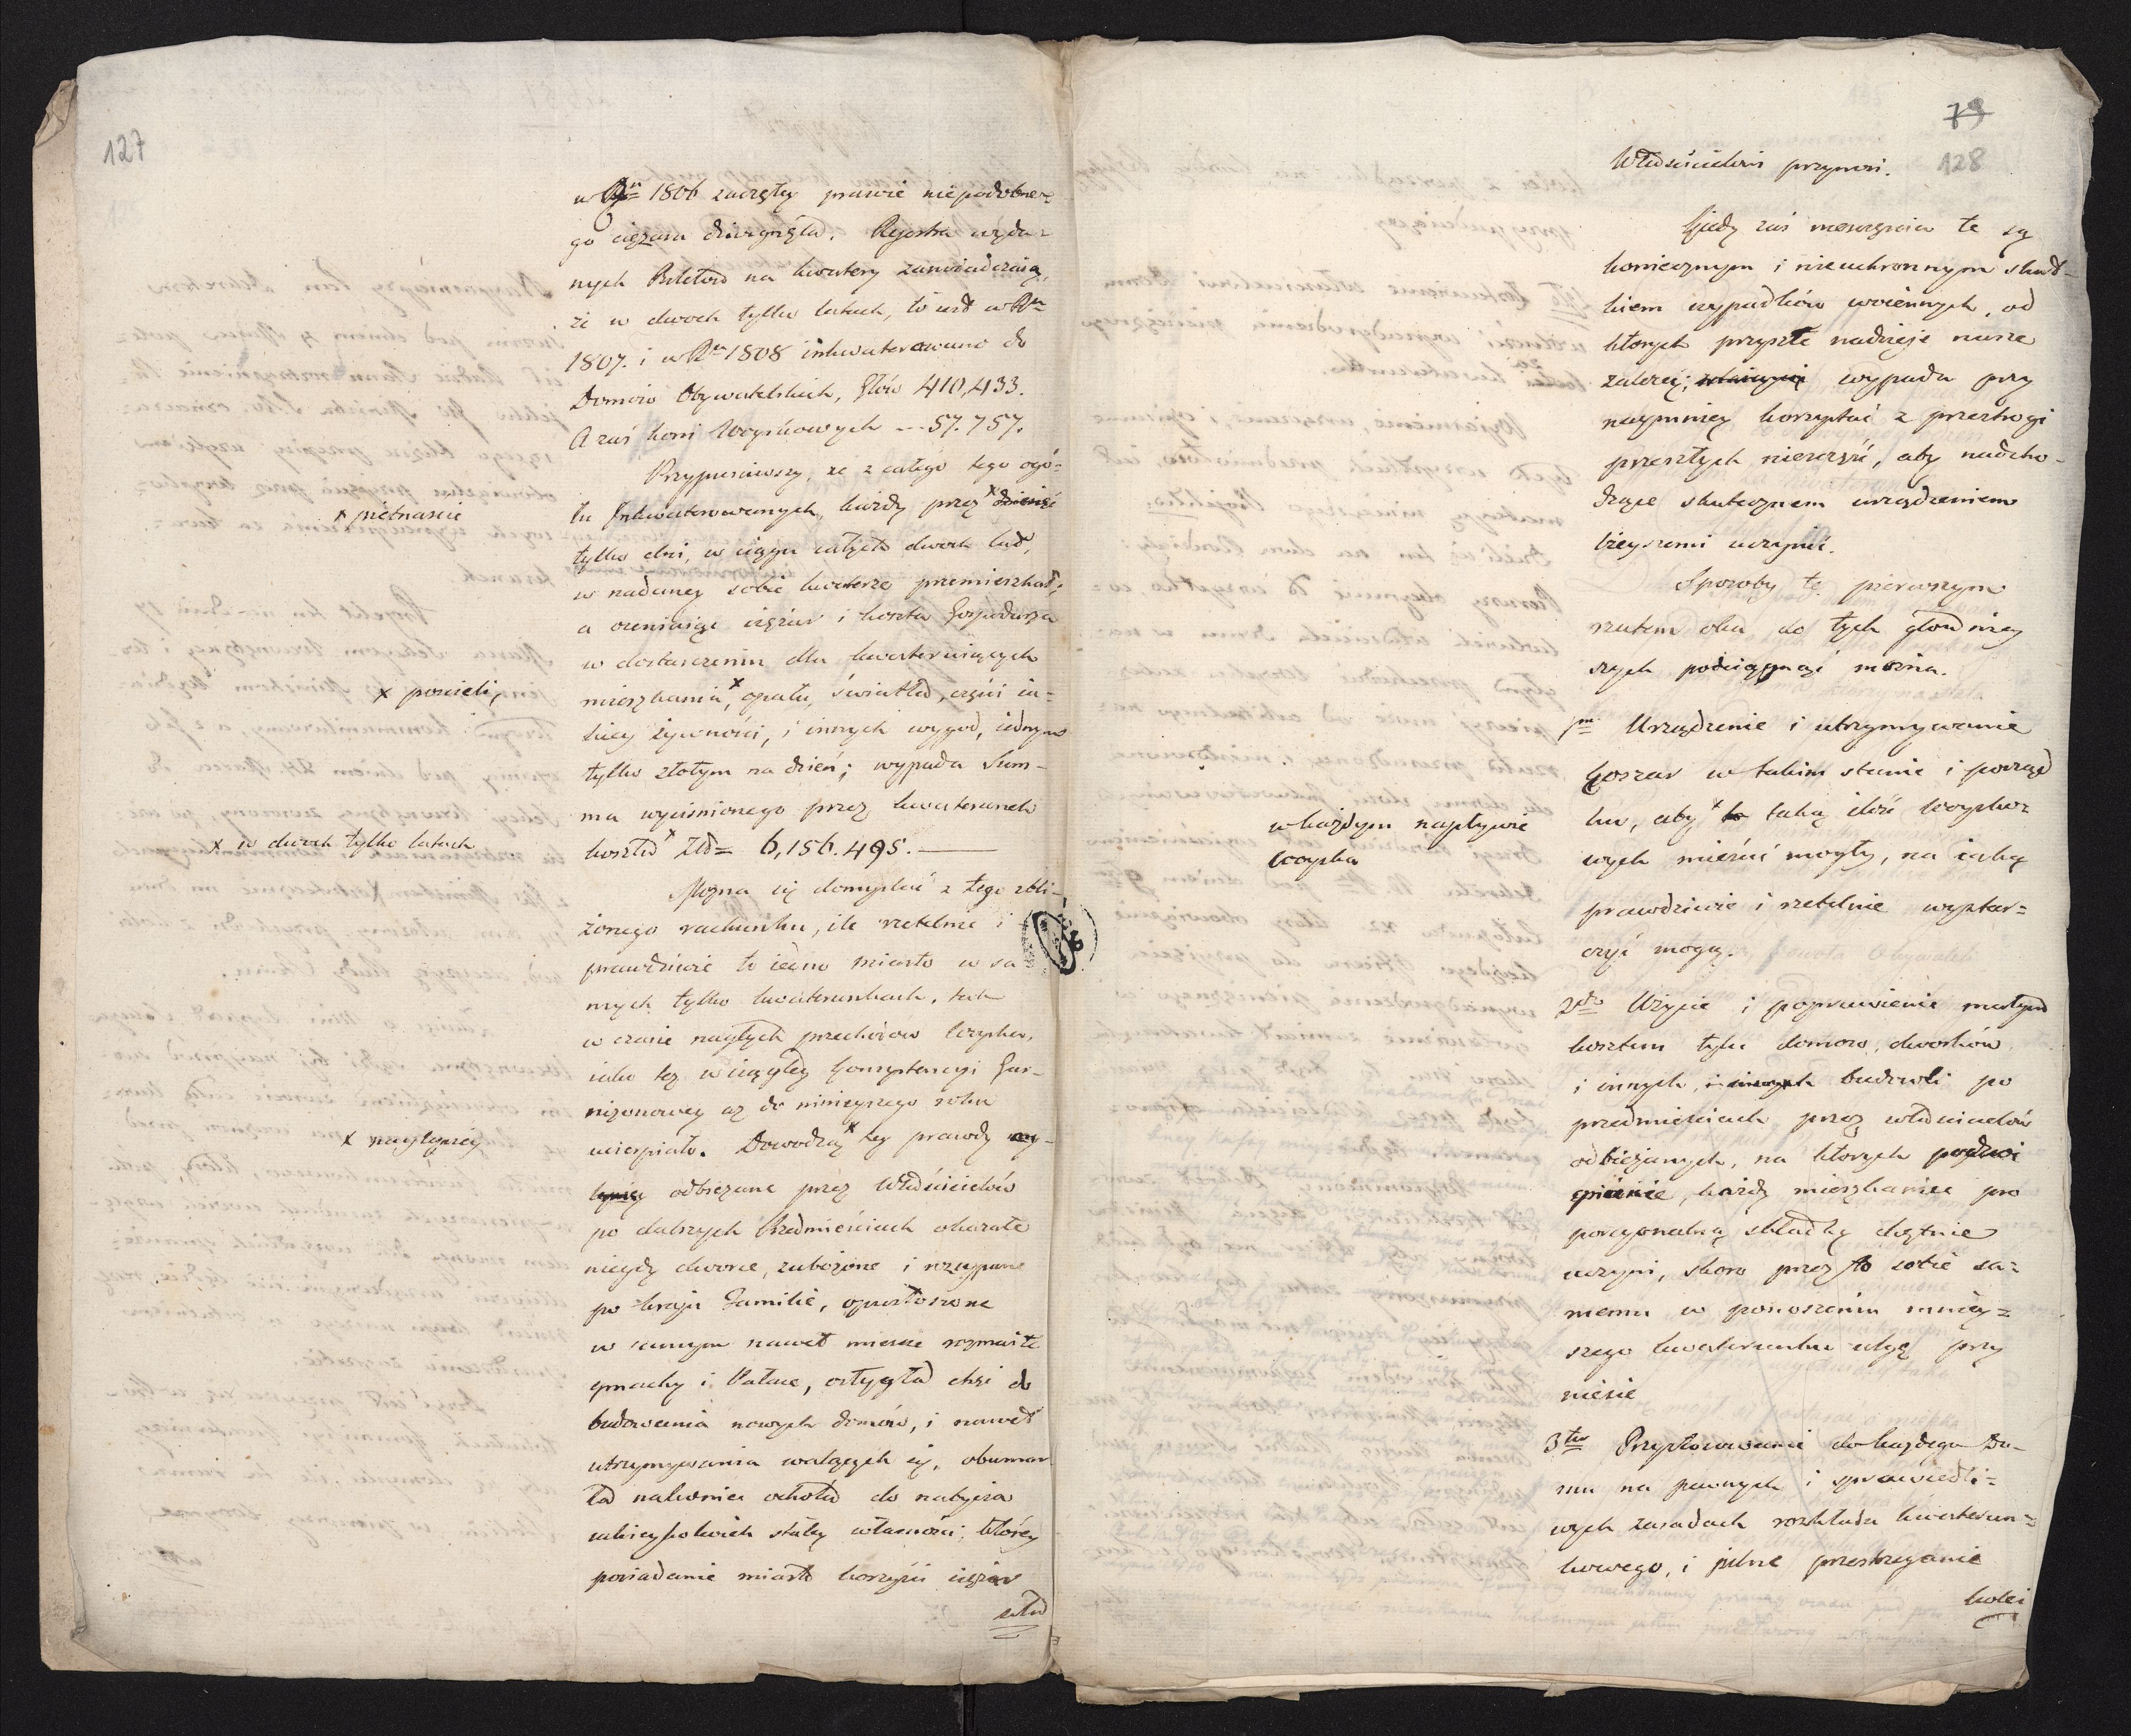 127
w Rů 1806 zaczęty prawie niepodobne=
go ciężaru dźwignęła. Rejestra wyda=
nych Biletow na kwatery zaświadczaią,
że w dwoch tylko latach, to iest w Ru
1807. i w Ru 1808 inkwaterowano do
Domów Obywatelskich, Głów 410,433.
A zaś koni Woyskowych --- 57.757.
Przypuściwszy, że z całego tego ogó=
łu Inkwaterowanych, każdy przez x dziesięć
x piętnaście
tylko dni, w ciągu całych dwoch lat,
w nadaney sobie kwaterze przemieszkał;
a oceniaiąc ciężar i koszta Gospodarza
w dostarczeniu dla kwateruiących
mieszkania, x opału, światła, części ia=
x poscieli,
kiey żywności, i innych wygod, iednym
tylko złotym na dzień; wypada Sum=
ma wycisnionego przez kwaterunek
kosztu x Zł= 6,156.495.
x w dwoch tylko latach
Można się domyslać z tego zbli=
żonego rachunku, ile rzetelnie i
prawdziwie to iedno miasto w sa=
mych tylko kwaterunkach, tak
w czasie nagłych przechodow Woyska,
iako też w ciągłey Konsystencyi Gar=
nizonowey aż do ninieyszego roku
ucierpiało. Dowodzą x tey prawdy
x naylepiey
odbieżane przez Właścicielów
po dalszych Przedmieściach okazałe
niegdy dworce, zubożone i rozsypane
po kraju Familie, opustoszone
w samym nawet miescie rozmaite
gmachy i Pałace, ostygła chęć do
budowania nowych domów, i nawet
utrzymywania walących się, obumar
ła nakoniec ochota do nabycia
iakieykolwiek stałey własności, ktorey
posiadanie miasto korzyści ciężar
79
128
Właścicielowi przynosi.
Gdy zaś nieszczęścia te są
koniecznym i nieuchronnym skut=
kiem wypadków woiennych, od
ktorych przyszłe nadzieje nasze
zależą; wypada przy
naymniey korzystać z przestrogi
przeszłych nieszczęść, aby nadcho=
dzące skutecznem urządzeniem
lżeyszemi uczynić.
Sposoby te pierwszym
rzutem oka do tych głowniey
szych pościągnąć można.
1mo Urządzenie i utrzymywanie
Koszar w takim stanie i porząd
ku, aby x taką ilość Woysko=
w każdym napływie
Woyska
wych mieścić mogły, na iaką
prawdziwie i rzetelnie wystar=
czyć mogą.
2do Użycie i poprawienie małym
kosztem tylu domow, dworków
i innych budowli po
przedmieściach przez właścicielów
odbieżanych, na ktorych
każdy mieszkaniec pro
porcyonalną składkę chętnie
uczyni, skoro przez to sobie sa=
memu w ponoszeniu mniey=
szego kwaterunku ulgę przy
niesie
3tio Przystosowanie do każdego Do=
mu na pewnych i sprawiedli=
wych zasadach rozkładu kwaterun=
kowego, i pilne przestrzeganie
kolei